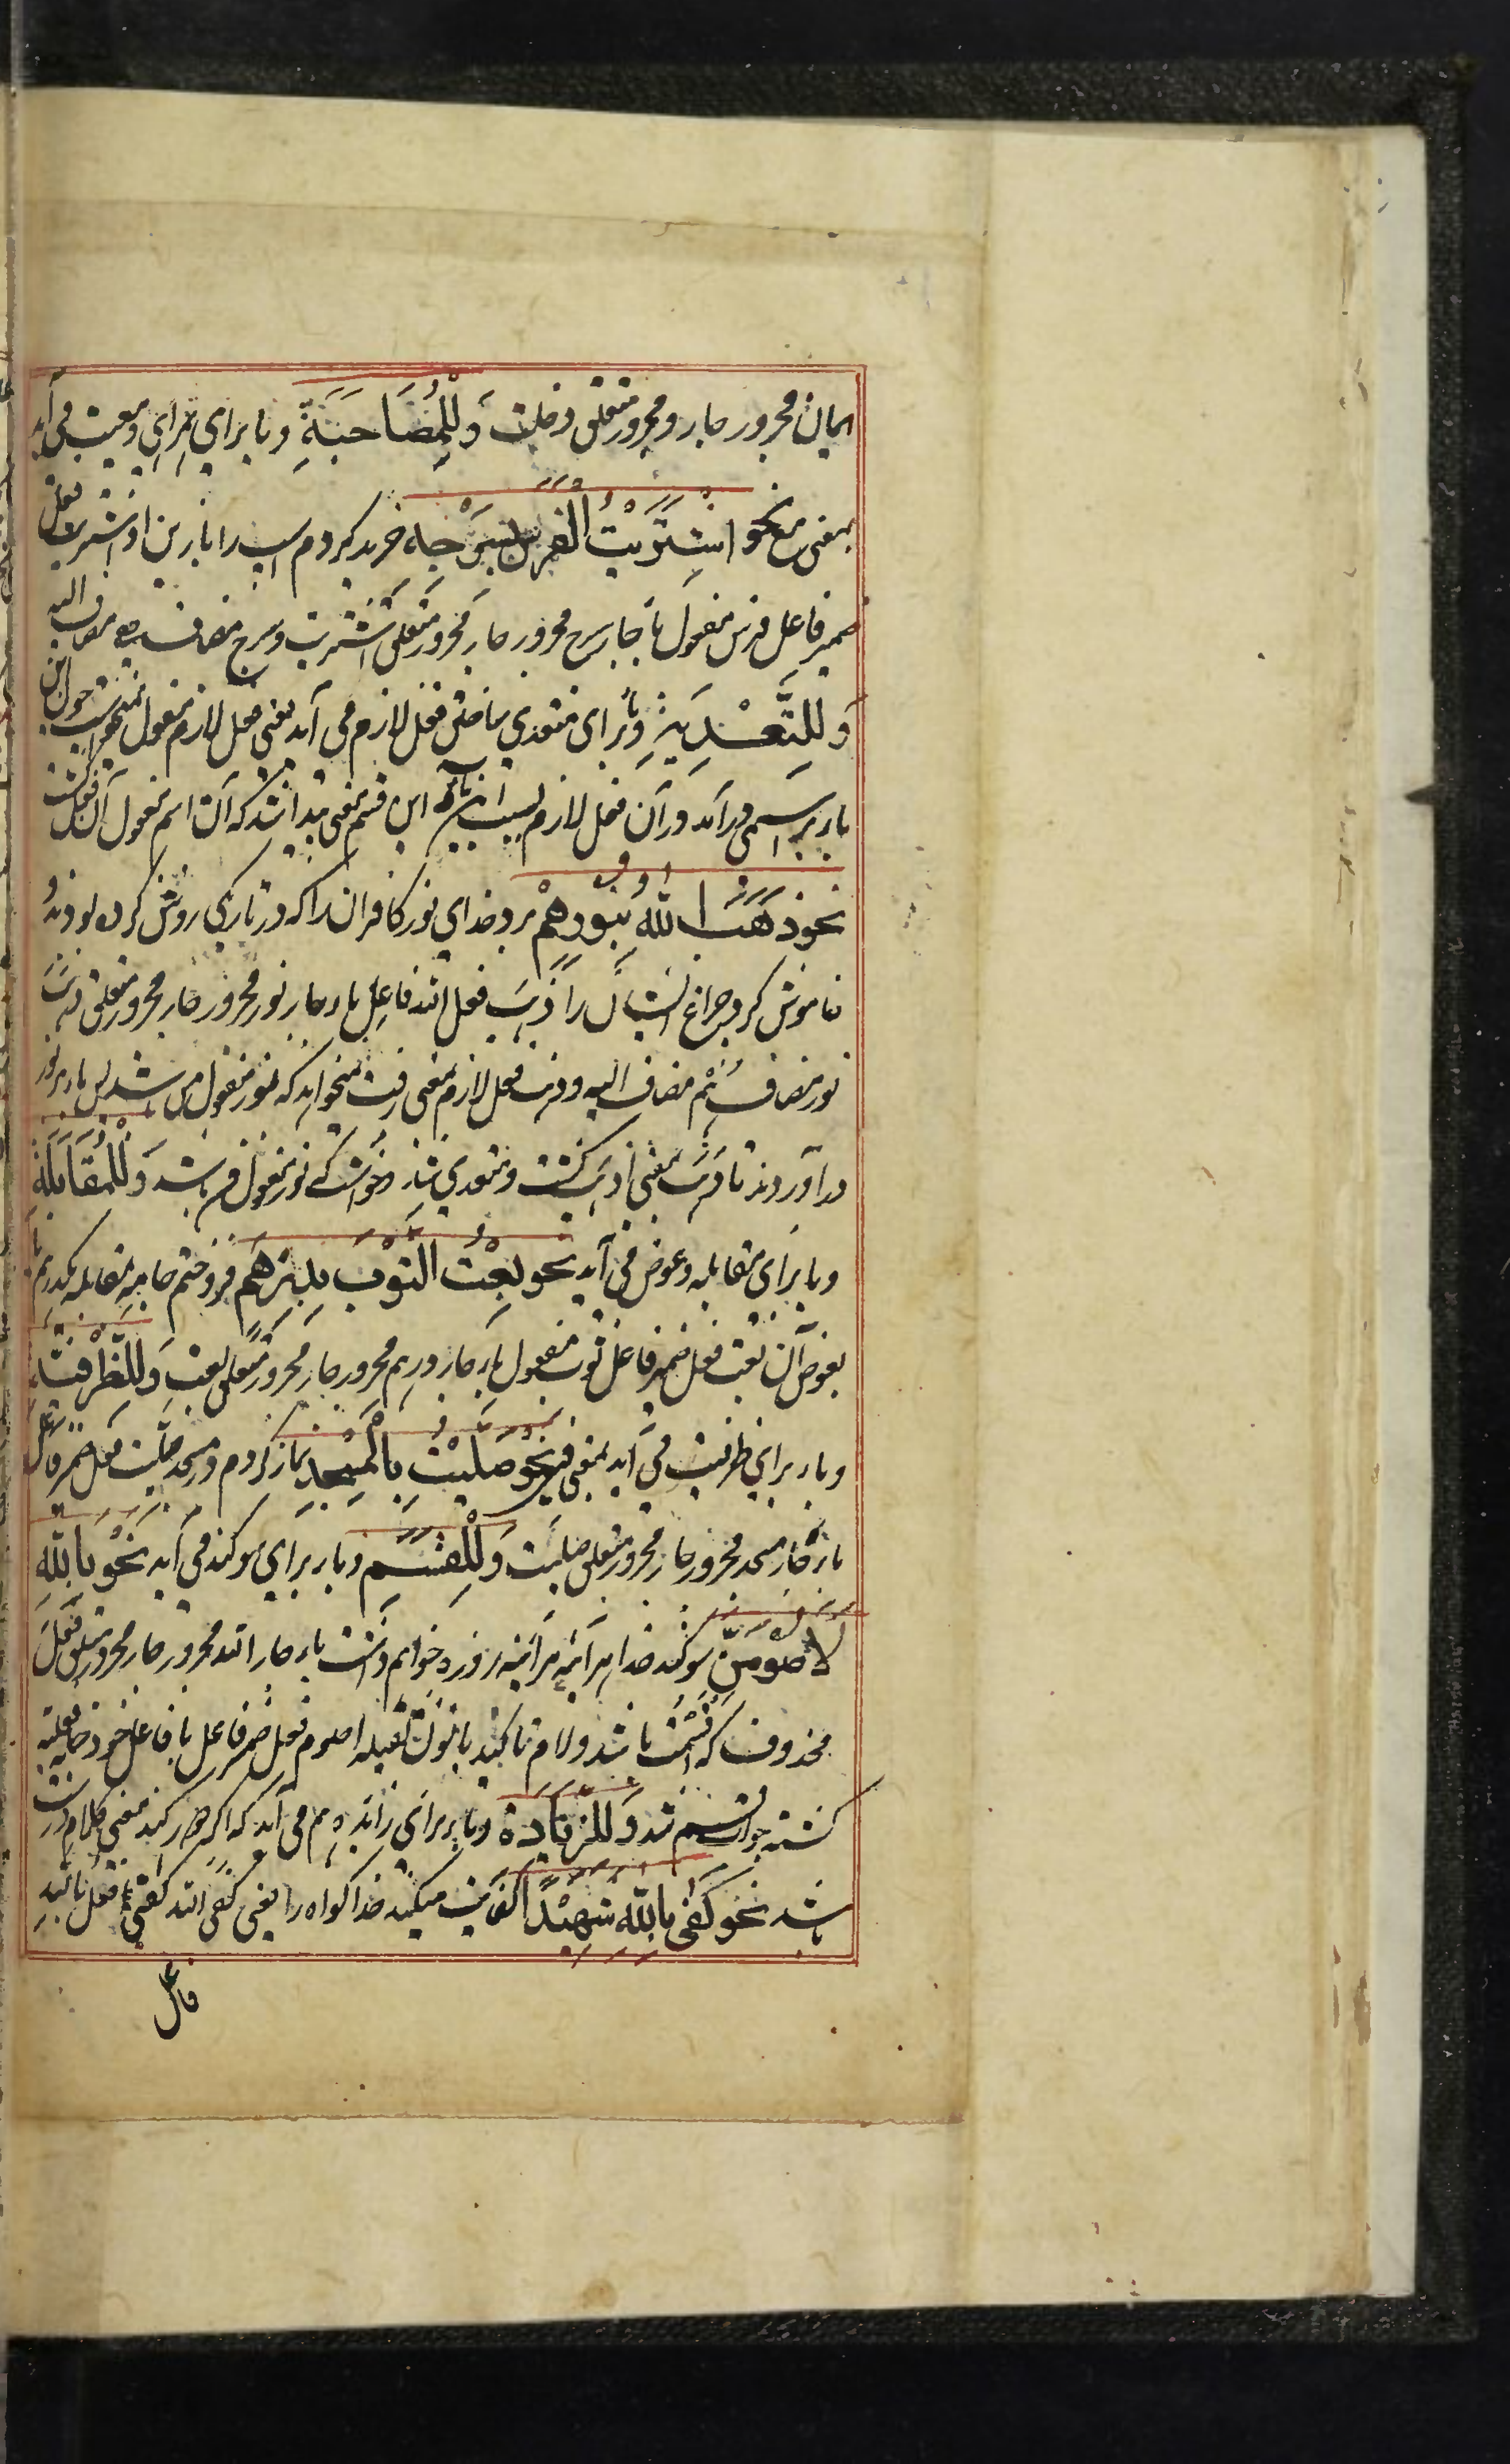 ایمان مجرور جار و مجرور متعلق دخلت وَلِلْمُصَاحَبَةِ و با برای همراهی و معیت می آید
بمعنی مع نحو اشْتَرَيْتُ الْفَرَسَ بِسَرْجِهِ خرید کردم اسپ را با زین او اشتریت فعل
ضمیر فاعل فرس مفعول با جار سرج مجرور جار مجرور متعلق اشتریت و سرج مضاف ه مضاف الیه
وَلِلتَّعْدِيَةِ و با برای متعدی ساختن فعل لازم می آید یعنی فعل لازم مفعول نمیخواست چون این
باء بر اسمی درآید در آن فعل لازم بسبب این باء این قسم معنی پیدا شد که آن اسم مفعول آن فعل گشت
نحو ذَهَبَ اللّٰهُ بِنُورِهِمْ برد خدای نور کافران را که در تاریکی روشن کرده بودند و
خاموش کرد چراغ ایشان را ذهب فعل الله فاعل باء جار نور مجرور جار مجرور متعلق ذهب
نور مضاف هُمْ مضاف الیه و ذهب فعل لازم بمعنی رفت نمیخواهد که نور مفعول من باشد پس باء بر نور
درآوردند تا ذهب بمعنی اذهب گشت و متعدی شد و خواست که نور مفعول من باشد وَلِلْمُقَابَلَةِ
و با برای مقابله و عوض می آید نحو بِعْتُ الثَّوْبَ بِدِرْهَمٍ فروختم جامه بمقابله یکدرهم یا
بعوض آن بعت فعل ضمیر فاعل ثوب مفعول باء جار درهم مجرور جار مجرور متعلق بعت وَلِلظَّرْفِيَّةِ
و باء برای ظرفیت می آید بمعنی فی نحو صَلَّيْتُ بِالْمَسْجِدِ نماز کردم در مسجد صلیت فعل ضمیر فاعل
باء جار مسجد مجرور جار مجرور متعلق صلیت وَلِلْقَسَمِ و باء برای سوگند می آید نَحْوُ بِاللّٰهِ
لَاَصُوْمَنَّ سوگند خدا هرآئینه هرآئینه روزه خواهم داشت باء جار الله مجرور جار مجرور متعلق فعل
محذوف که اُقْسِمُ باشد و لام تاکید با نون ثقیله اصوم فعل ضمیر فاعل با فاعل خود جمله فعلیه
گشته جواب قسم شد وَلِلزِّيَادَةِ و باء برای زائده هم می آید که اگر دور کنند معنی کلام درست
باشد نحو كَفٰى بِاللّٰهِ شَهِيْدًا کفایت میکند خدا گواه را یعنی کفی الله کفی فعل باء زائد
فاعل